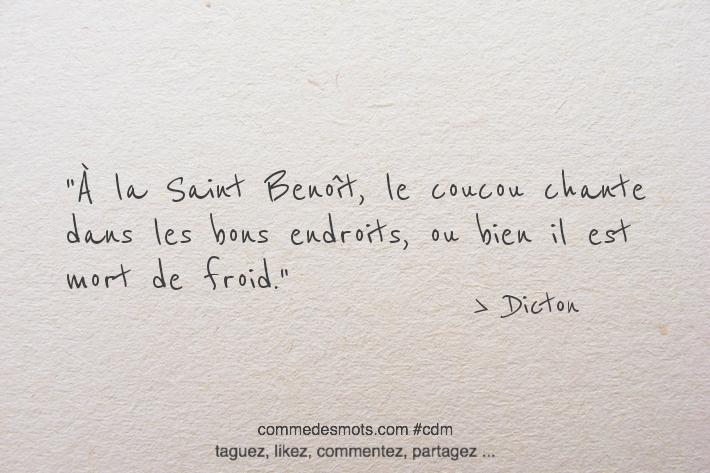 "À la Saint Benoît, le coucou chante
dans les bons endroits, ou bien il est
mort de froid."
> Dicton
commedesmots.com #cdm
taguez, likez, commentez, partagez ...